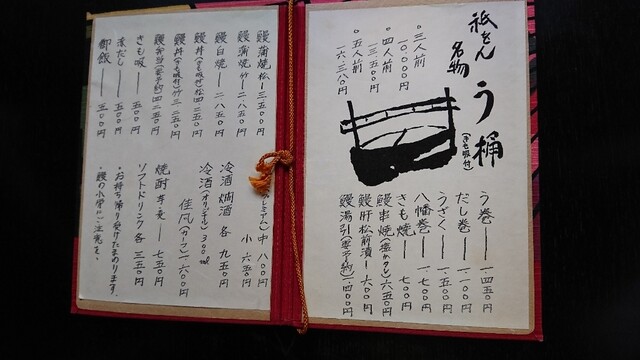 祇をん
名物
う桶
(きも吸付)
・三人前
一〇、〇〇〇円
・四人前
一三、五〇〇円
・五人前
一六、三八〇円
う巻 ー 一、四五〇円
だし巻 ー 一、一〇〇円
うざく ー 一、五〇〇円
八幡巻 ー 一、七〇〇円
きも焼 ー 一、七〇〇円
鰻肝松前漬 ー 六〇〇円
鰻湯引(要予約) 一、四〇〇円
中 八〇〇円
小 六五〇円
冷酒 燗酒 各 九五〇円
冷酒(オリジナル) 三〇〇ml
一、六〇〇円
焼酎 芋・麦 ー 七五〇円
ソフトドリンク 各 三五〇円
・お持ち帰り受けたまわります。
・鰻の小骨にご注意を。
鰻蒲焼 松 ー 三、五〇〇円
鰻蒲焼 竹 ー 二、八五〇円
鰻白焼 ー 二、八五〇円
鰻丼(きも吸付) 松 四、二五〇円
鰻丼(きも吸付) 竹 三、二五〇円
鰻弁当(要予約) 四、二五〇円
きも吸 ー 五〇〇円
赤だし ー 五〇〇円
御飯 ー 三〇〇円